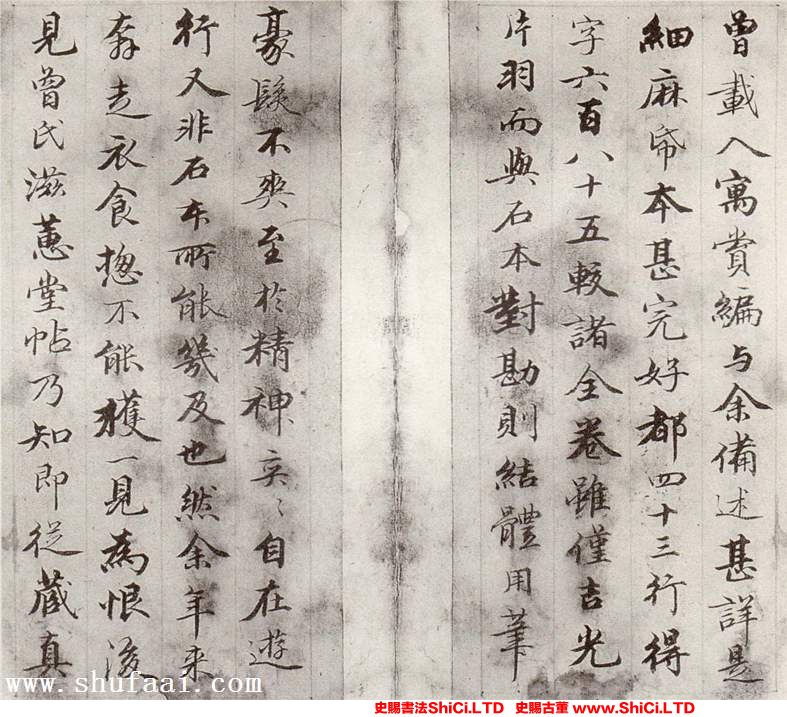 曾載入寓賞編与余備述甚詳是
細麻帋本甚完好都四十三行得
字六百八十五較諸全卷雖僅吉光
片羽而與石本對勘則結體用筆
豪髮不爽至於精神奕〻自在遊
行又非石本所能幾及也然余年来
奔走衣食揔不能獲一見為恨後
見曾氏滋蕙堂帖乃知即從藏真
www.shufaai.com
史賜書法ShiCi.LTD 史賜古董 www.ShiCi.LTD